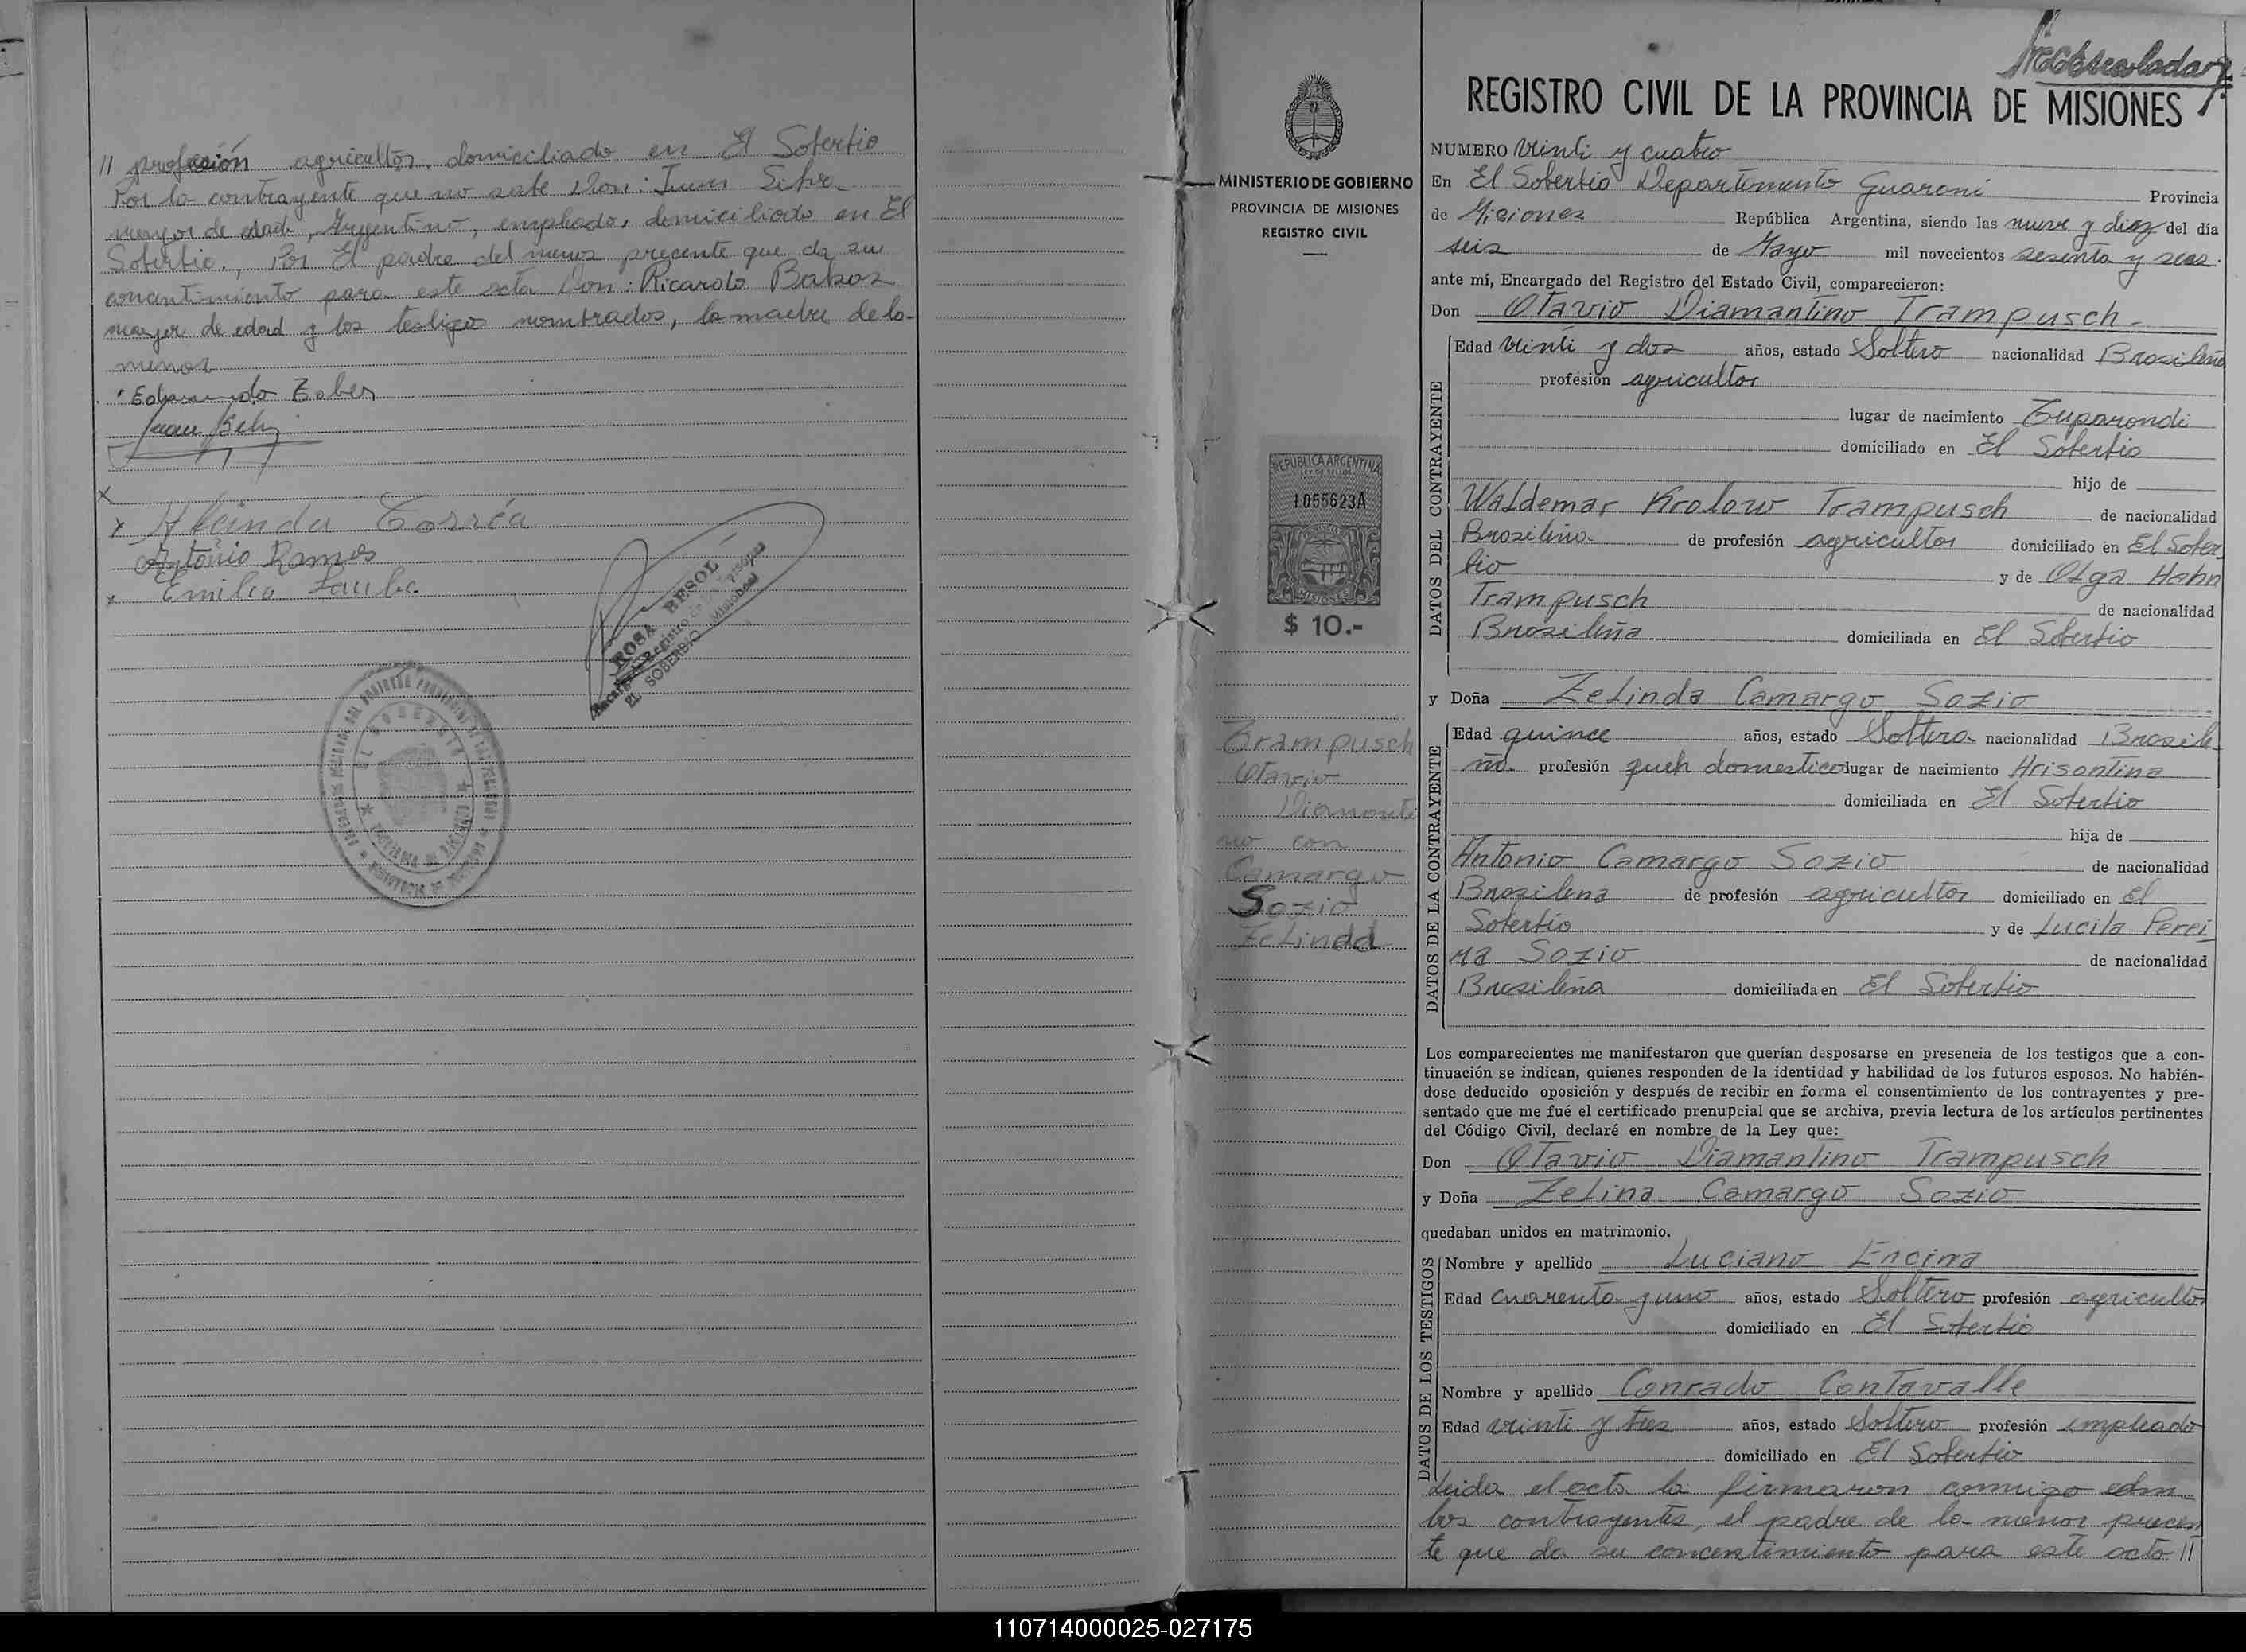 // profesión agricultor domiciliado en El Soberbio
Por la contrayente que no sabe Don: Juan Silva
mayor de edad, Argentino, empleado, domiciliado en El
Soberbio., Por El padre del menor precente que da su
concentimiento para este acta Don: Ricardo
mayor de edad y los testigos nombrados, la madre de la
menor
Juan
Correa
Antonio Ramos
Emilio
ROSA BESOL
Encargada Registro de las Personas
EL SOBERBIO (Misiones)
MINISTERIO DE GOBIERNO
PROVINCIA DE MISIONES
REGISTRO CIVIL
REPUBLICA ARGENTINA
LEY DE SELLOS
1055623A
MISIONES
$ 10.-
Trampusch
Otavio
Diamanti
no con
Camargo
Sozio
Zelinda
REGISTRO CIVIL DE LA PROVINCIA DE MISIONES
NUMERO veinti y cuatro
En El Soberbio Departamento Guaraní Provincia
de Misiones República Argentina, siendo las nueve y diez del día
seis de Mayo mil novecientos sesenta y seis.
ante mí, Encargado del Registro del Estado Civil, comparecieron:
Don Otavio Diamantino Trampusch.
DATOS DEL CONTRAYENTE
Edad veinti y dos años, estado Soltero nacionalidad Brasileña
profesión agricultor
lugar de nacimiento Tuparendi
domiciliado en El Soberbio
hijo de
Waldemar Krolow Trampusch de nacionalidad
Brasileña de profesión agricultor domiciliado en El Sober
bio y de Olga Hahn
Trampusch de nacionalidad
Brasileña domiciliada en El Soberbio
y Doña Zelinda Camargo Sozio
DATOS DE LA CONTRAYENTE
Edad quince años, estado Soltera nacionalidad Brasile
ña. profesión queh domestico lugar de nacimiento Hrisontina
domiciliada en El Soberbio
hija de
Antonio Camargo Sozio de nacionalidad
Brasilena de profesión agricultor domiciliado en El
Soberbio y de Lucila Perei
ra Sozio de nacionalidad
Brasileña domiciliada en El Soberbio
Los comparecientes me manifestaron que querían desposarse en presencia de los testigos que a con-
tinuación se indican, quienes responden de la identidad y habilidad de los futuros esposos. No habién-
dose deducido oposición y después de recibir en forma el consentimiento de los contrayentes y pre-
sentado que me fué el certificado prenupcial que se archiva, previa lectura de los artículos pertinentes
del Código Civil, declaré en nombre de la Ley que:
Don Otavio Diamantino Trampusch
y Doña Zelina Camargo Sozio
quedaban unidos en matrimonio.
DATOS DE LOS TESTIGOS
Nombre y apellido Luciano Encina
Edad cuarenta y uno años, estado Soltero profesión agricultor
domiciliado en El Soberbio
Nombre y apellido Conrado Contavalle
Edad veinti y tres años, estado Soltero profesión empleado
domiciliado en El Soberbio
Leida el acta la firmaron conmigo edm
bos contrayentes, el padre de la menor precen
te que da su concentimiento para este acto //
110714000025-027175